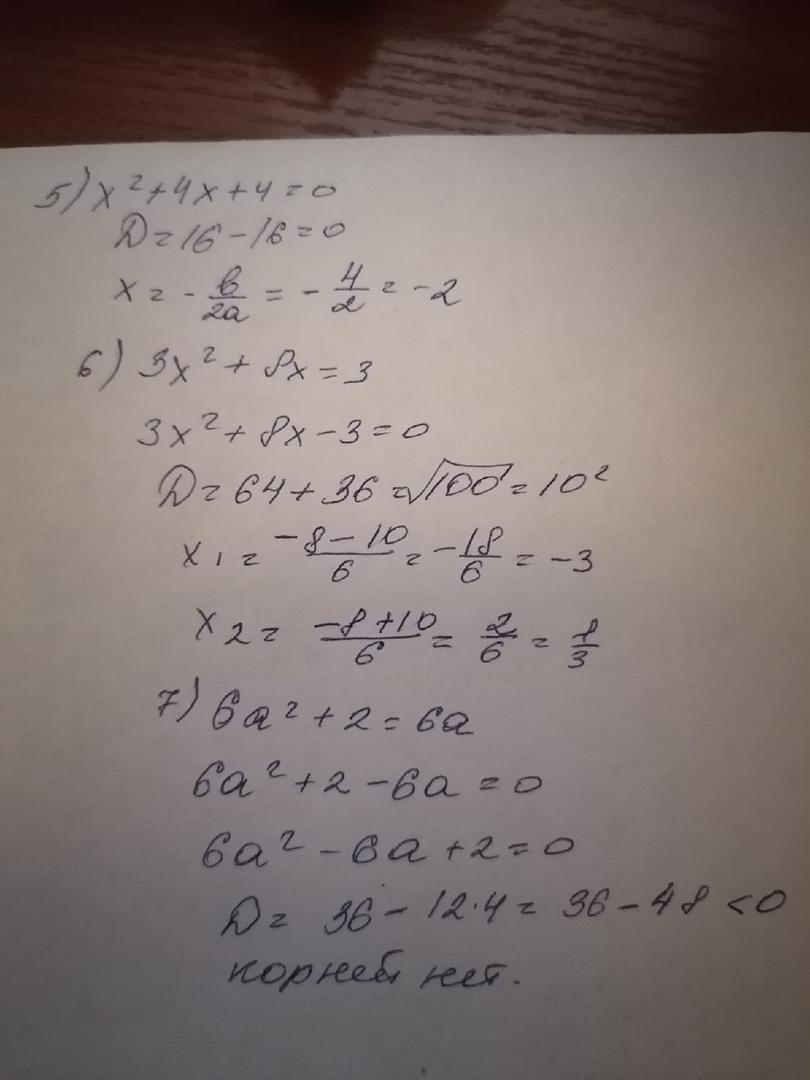 5) x² + 4x + 4 = 0
D = 16 - 16 = 0
x = - b/2a = - 4/2 = -2
6) 3x² + 8x = 3
3x² + 8x - 3 = 0
D = 64 + 36 = √100 = 10²
x₁ = -8-10/6 = -18/6 = -3
x₂ = -8+10/6 = 2/6 = 1/3
7) 6a² + 2 = 6a
6a² + 2 - 6a = 0
6a² - 6a + 2 = 0
D = 36 - 12·4 = 36 - 48 < 0
корней нет.